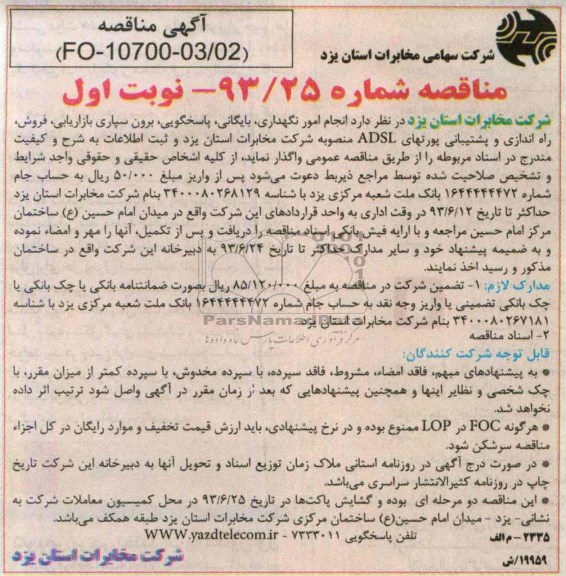 آگهی مناقصه
(FO-10700-03/02)
شرکت سهامی مخابرات استان یزد
مناقصه شماره ۹۳/۲۵- نوبت اول
شرکت مخابرات استان یزد در نظر دارد انجام امور نگهداری، بایگانی، پاسخگویی، برون سپاری بازاریابی، فروش،
راه اندازی و پشتیبانی پورتهای ADSL منصوبه شرکت مخابرات استان یزد و ثبت اطلاعات به شرح و کیفیت
مندرج در اسناد مربوطه را از طریق مناقصه عمومی واگذار نماید، از کلیه اشخاص حقیقی و حقوقی واجد شرایط
و تشخیص صلاحیت شده توسط مراجع ذیربط دعوت می‌شود پس از واریز مبلغ ۵۰/۰۰۰ ریال به حساب جام
شماره ۱۶۴۴۴۴۴۴۷۲ بانک ملت شعبه مرکزی یزد با شناسه ۳۴۰۰۰۸۰۲۶۸۱۲۹ بنام شرکت مخابرات استان یزد
حداکثر تا تاریخ ۹۳/۶/۱۲ در وقت اداری به واحد قراردادهای این شرکت واقع در میدان امام حسین (ع) ساختمان
مرکز امام حسین مراجعه و با ارایه فیش بانکی اسناد مناقصه را دریافت و پس از تکمیل، آنها را مهر و امضاء نموده
و به ضمیمه پیشنهاد خود و سایر مدارک حداکثر تا تاریخ ۹۳/۶/۲۴ به دبیرخانه این شرکت واقع در ساختمان
مذکور و رسید اخذ نمایند.
مدارک لازم: ۱- تضمین شرکت در مناقصه به مبلغ ۸۵/۱۲۰/۰۰۰ ریال بصورت ضمانتنامه بانکی یا چک بانکی یا
چک بانکی تضمینی یا واریز وجه نقد به حساب جام شماره ۱۶۴۴۴۴۴۴۷۲ بانک ملت شعبه مرکزی یزد با شناسه
۳۴۰۰۰۸۰۲۶۷۱۸۱ بنام شرکت مخابرات استان یزد
ParsNamadData
۲- اسناد مناقصه
مرکز فرآوری اطلاعات پارس نماد داده‌ها
قابل توجه شرکت کنندگان:
* به پیشنهادهای مبهم، فاقد امضاء، مشروط، فاقد سپرده، با سپرده مخدوش، با سپرده کمتر از میزان مقرر، با
چک شخصی و نظایر اینها و همچنین پیشنهادهایی که بعد از زمان مقرر در آگهی واصل شود ترتیب اثر داده
نخواهد شد.
* هرگونه FOC در LOP ممنوع بوده و در نرخ پیشنهادی، باید ارزش قیمت تخفیف و موارد رایگان در کل اجزاء
مناقصه سرشکن شود.
* در صورت درج آگهی در روزنامه استانی ملاک زمان توزیع اسناد و تحویل آنها به دبیرخانه این شرکت تاریخ
چاپ در روزنامه کثیرالانتشار سراسری می‌باشد.
* این مناقصه دو مرحله ای بوده و گشایش پاکت‌ها در تاریخ ۹۳/۶/۲۵ در محل کمیسیون معاملات شرکت به
نشانی- یزد - میدان امام حسین(ع) ساختمان مرکزی شرکت مخابرات استان یزد طبقه همکف می‌باشد.
۲۳۳۵ - م الف تلفن پاسخگویی ۷۳۳۳۰۱۱ - WWW.yazdtelecom.ir
۱۹۹۵۹/ش شرکت مخابرات استان یزد